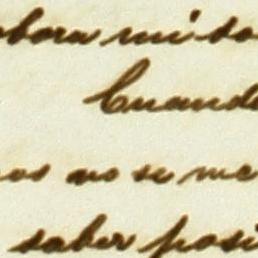 obora mi so
Cuando
nos no se me
saber posi